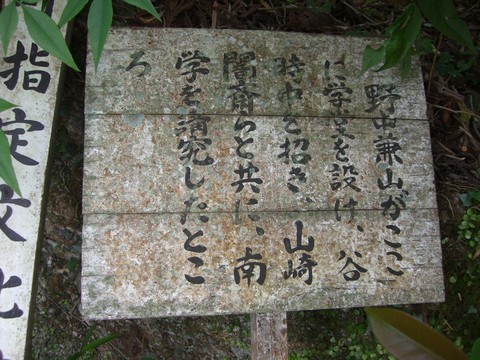 野中兼山がここ
に学堂を設け、谷
時中を招き、山崎
闇斎らと共に、南
学を講究したとこ
ろ
指定文化